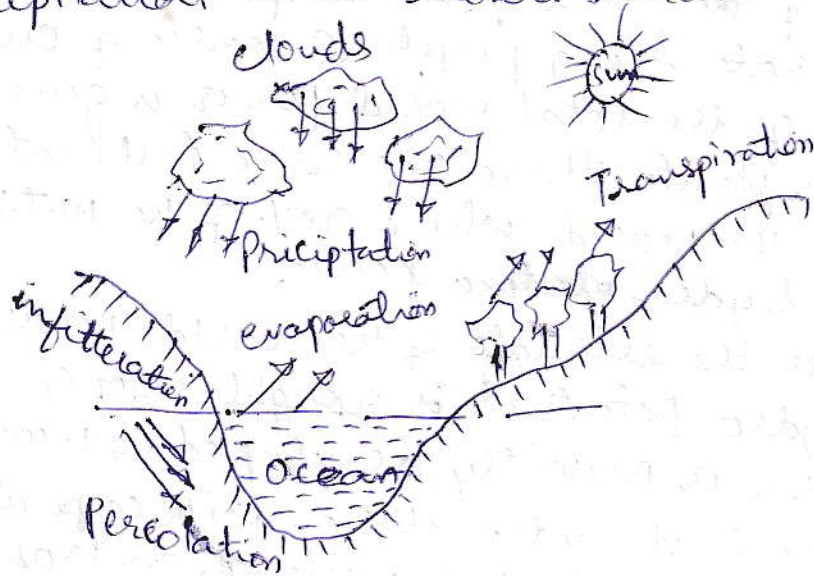 clouds
Sun
Transpiration
Priciptation
evaporation
infitteration
Ocean
Percolation